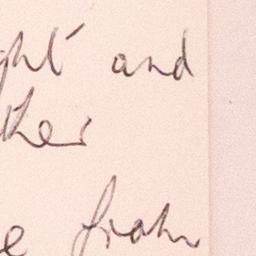 ght and
ther
e from